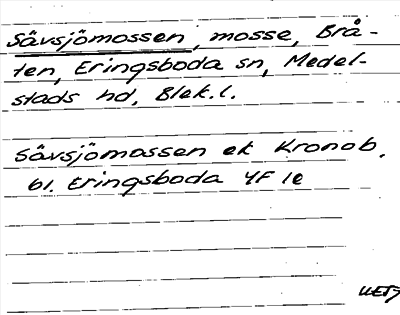 Sävsjömossen, mosse, Brå-
ten, Eringsboda sn, Medel-
stads hd, Blek.l.
Sävsjömossen ek Kronob.
bl. Eringsboda 4F 1e